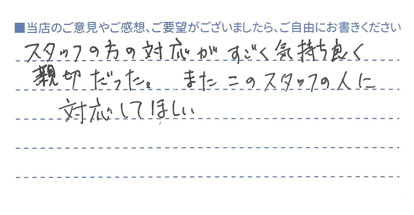 ■当店のご意見やご感想、ご要望がございましたら、ご自由にお書きください
スタッフの方の対応がすごく気持ち良く
親切だった。またこのスタッフの人に
対応してほしい